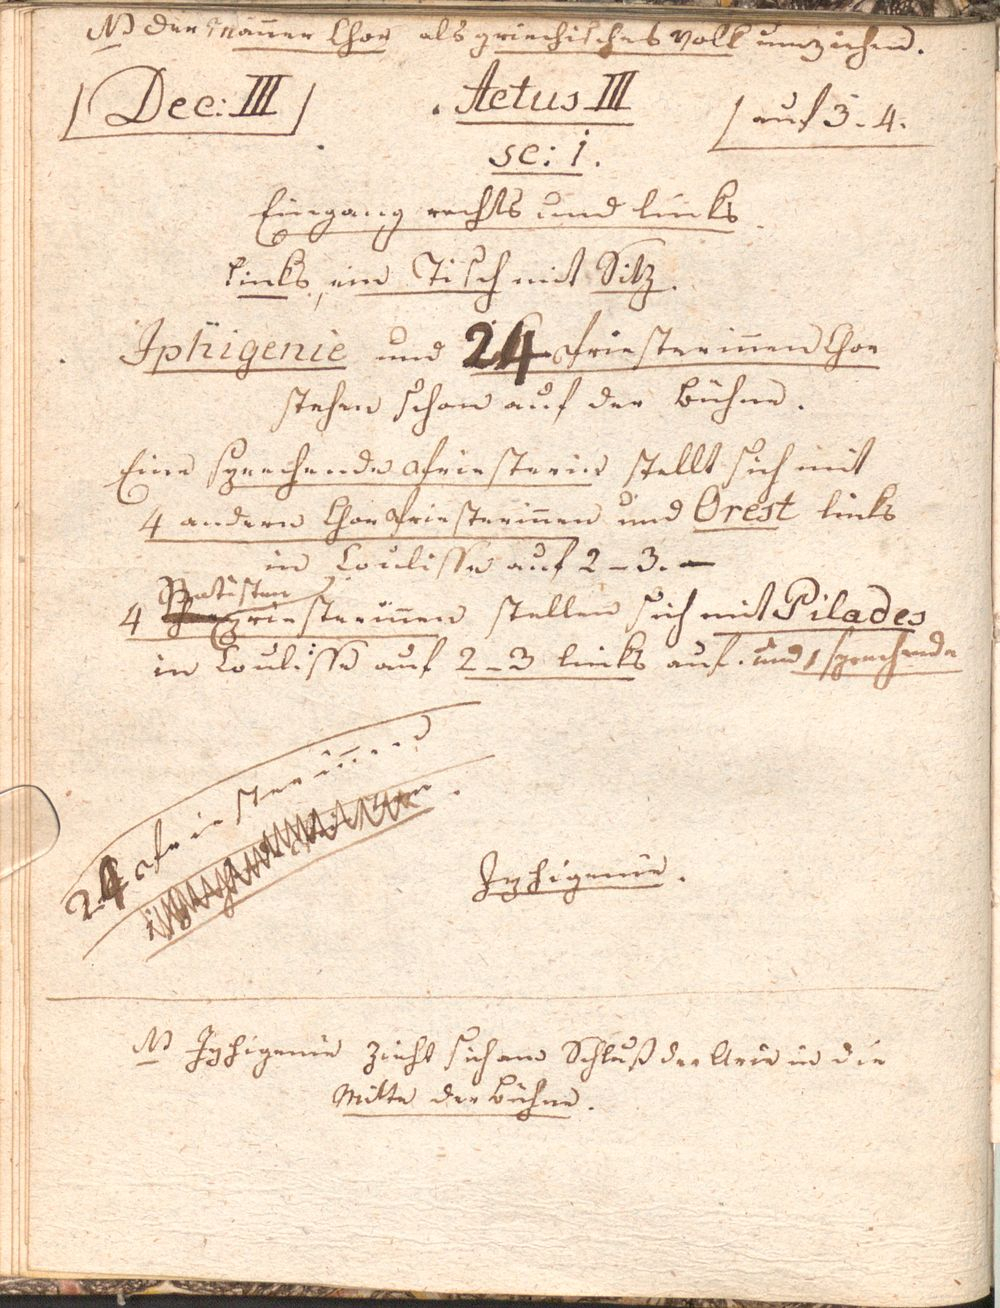 NB der Männer Chor als griechisches Volk umziehen.
Dec: III
Actus III
auf 3-4.
sc: 1.
Eingang rechts und links
links, ein Tisch mit Sitz.
Iphigenie und 24 Priesterinnen Chor
stehen schon auf der Bühne.
Eine sprechende Priesterin stellt sich mit
4 andern Chor Priesterinnen und Orest links
in Coulisse auf 2-3.-
Statisten
4 Priesterinnen stellen sich mit Pilades
in Coulisse auf 2-3 links auf. und 1 sprechende
24 Priesterinnen
Iphigenie.
NB Iphigenie zieht sich am Schluß der Arie in die
Mitte der Bühne.